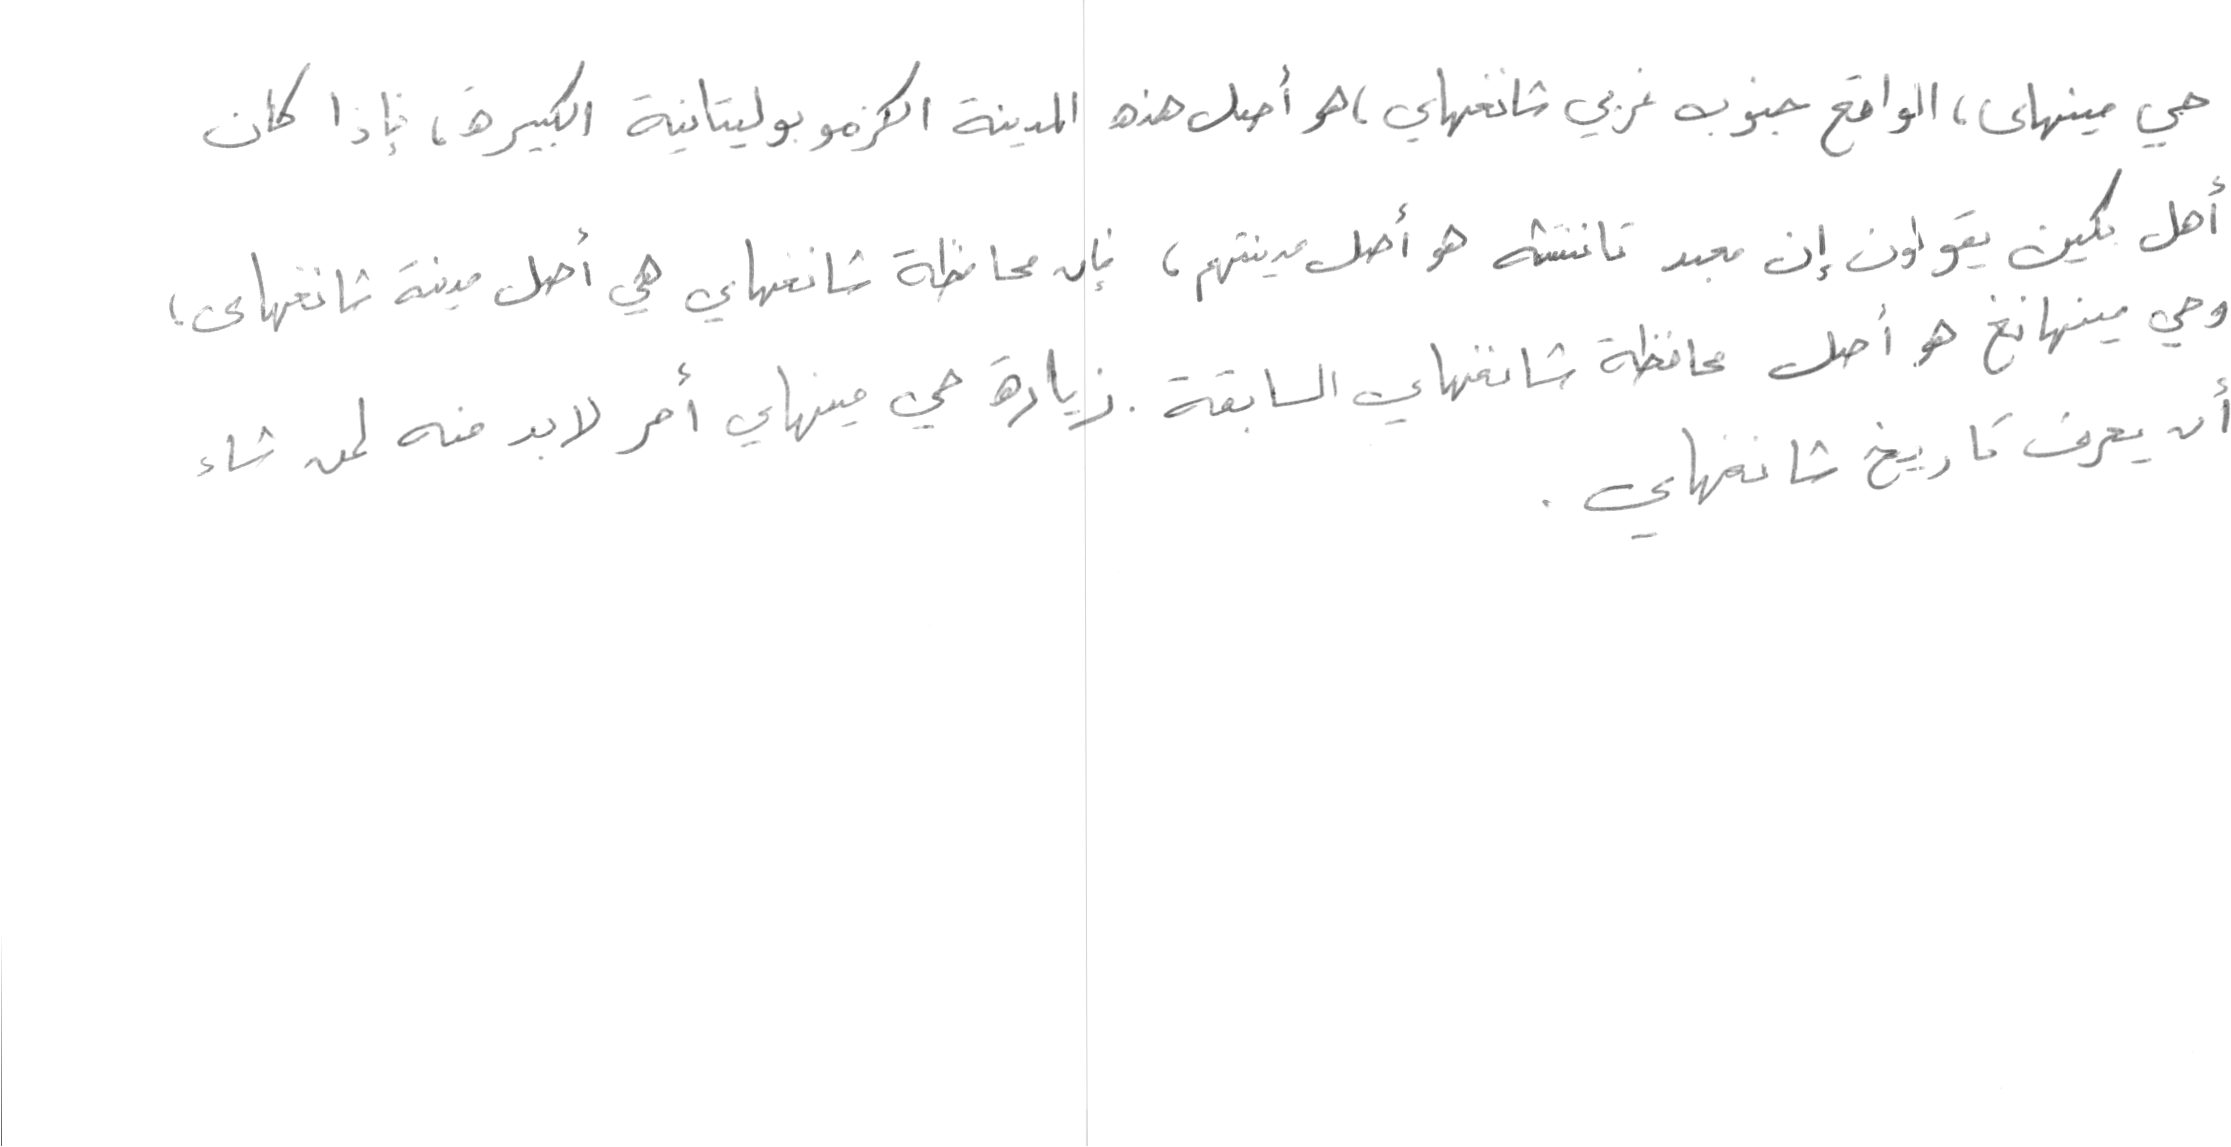 حي مينهاى، الواقع جنوب غربي شانغهاي، هو أصل هذه المدينة الكزموبوليتانية الكبيرة، فإذا كان
أهل بكين يقولون إن معبد تانتشه هو أصل مدينتهم، فإن محافظة شانغهاي هي أصل مدينة شانغهاى،
وحي مينهانغ هو أصل محافظة شانغهاي السابقة. زيارة حي مينهاي أمر لابد منه لمن شاء
أن يعرف تاريخ شانغهاي.